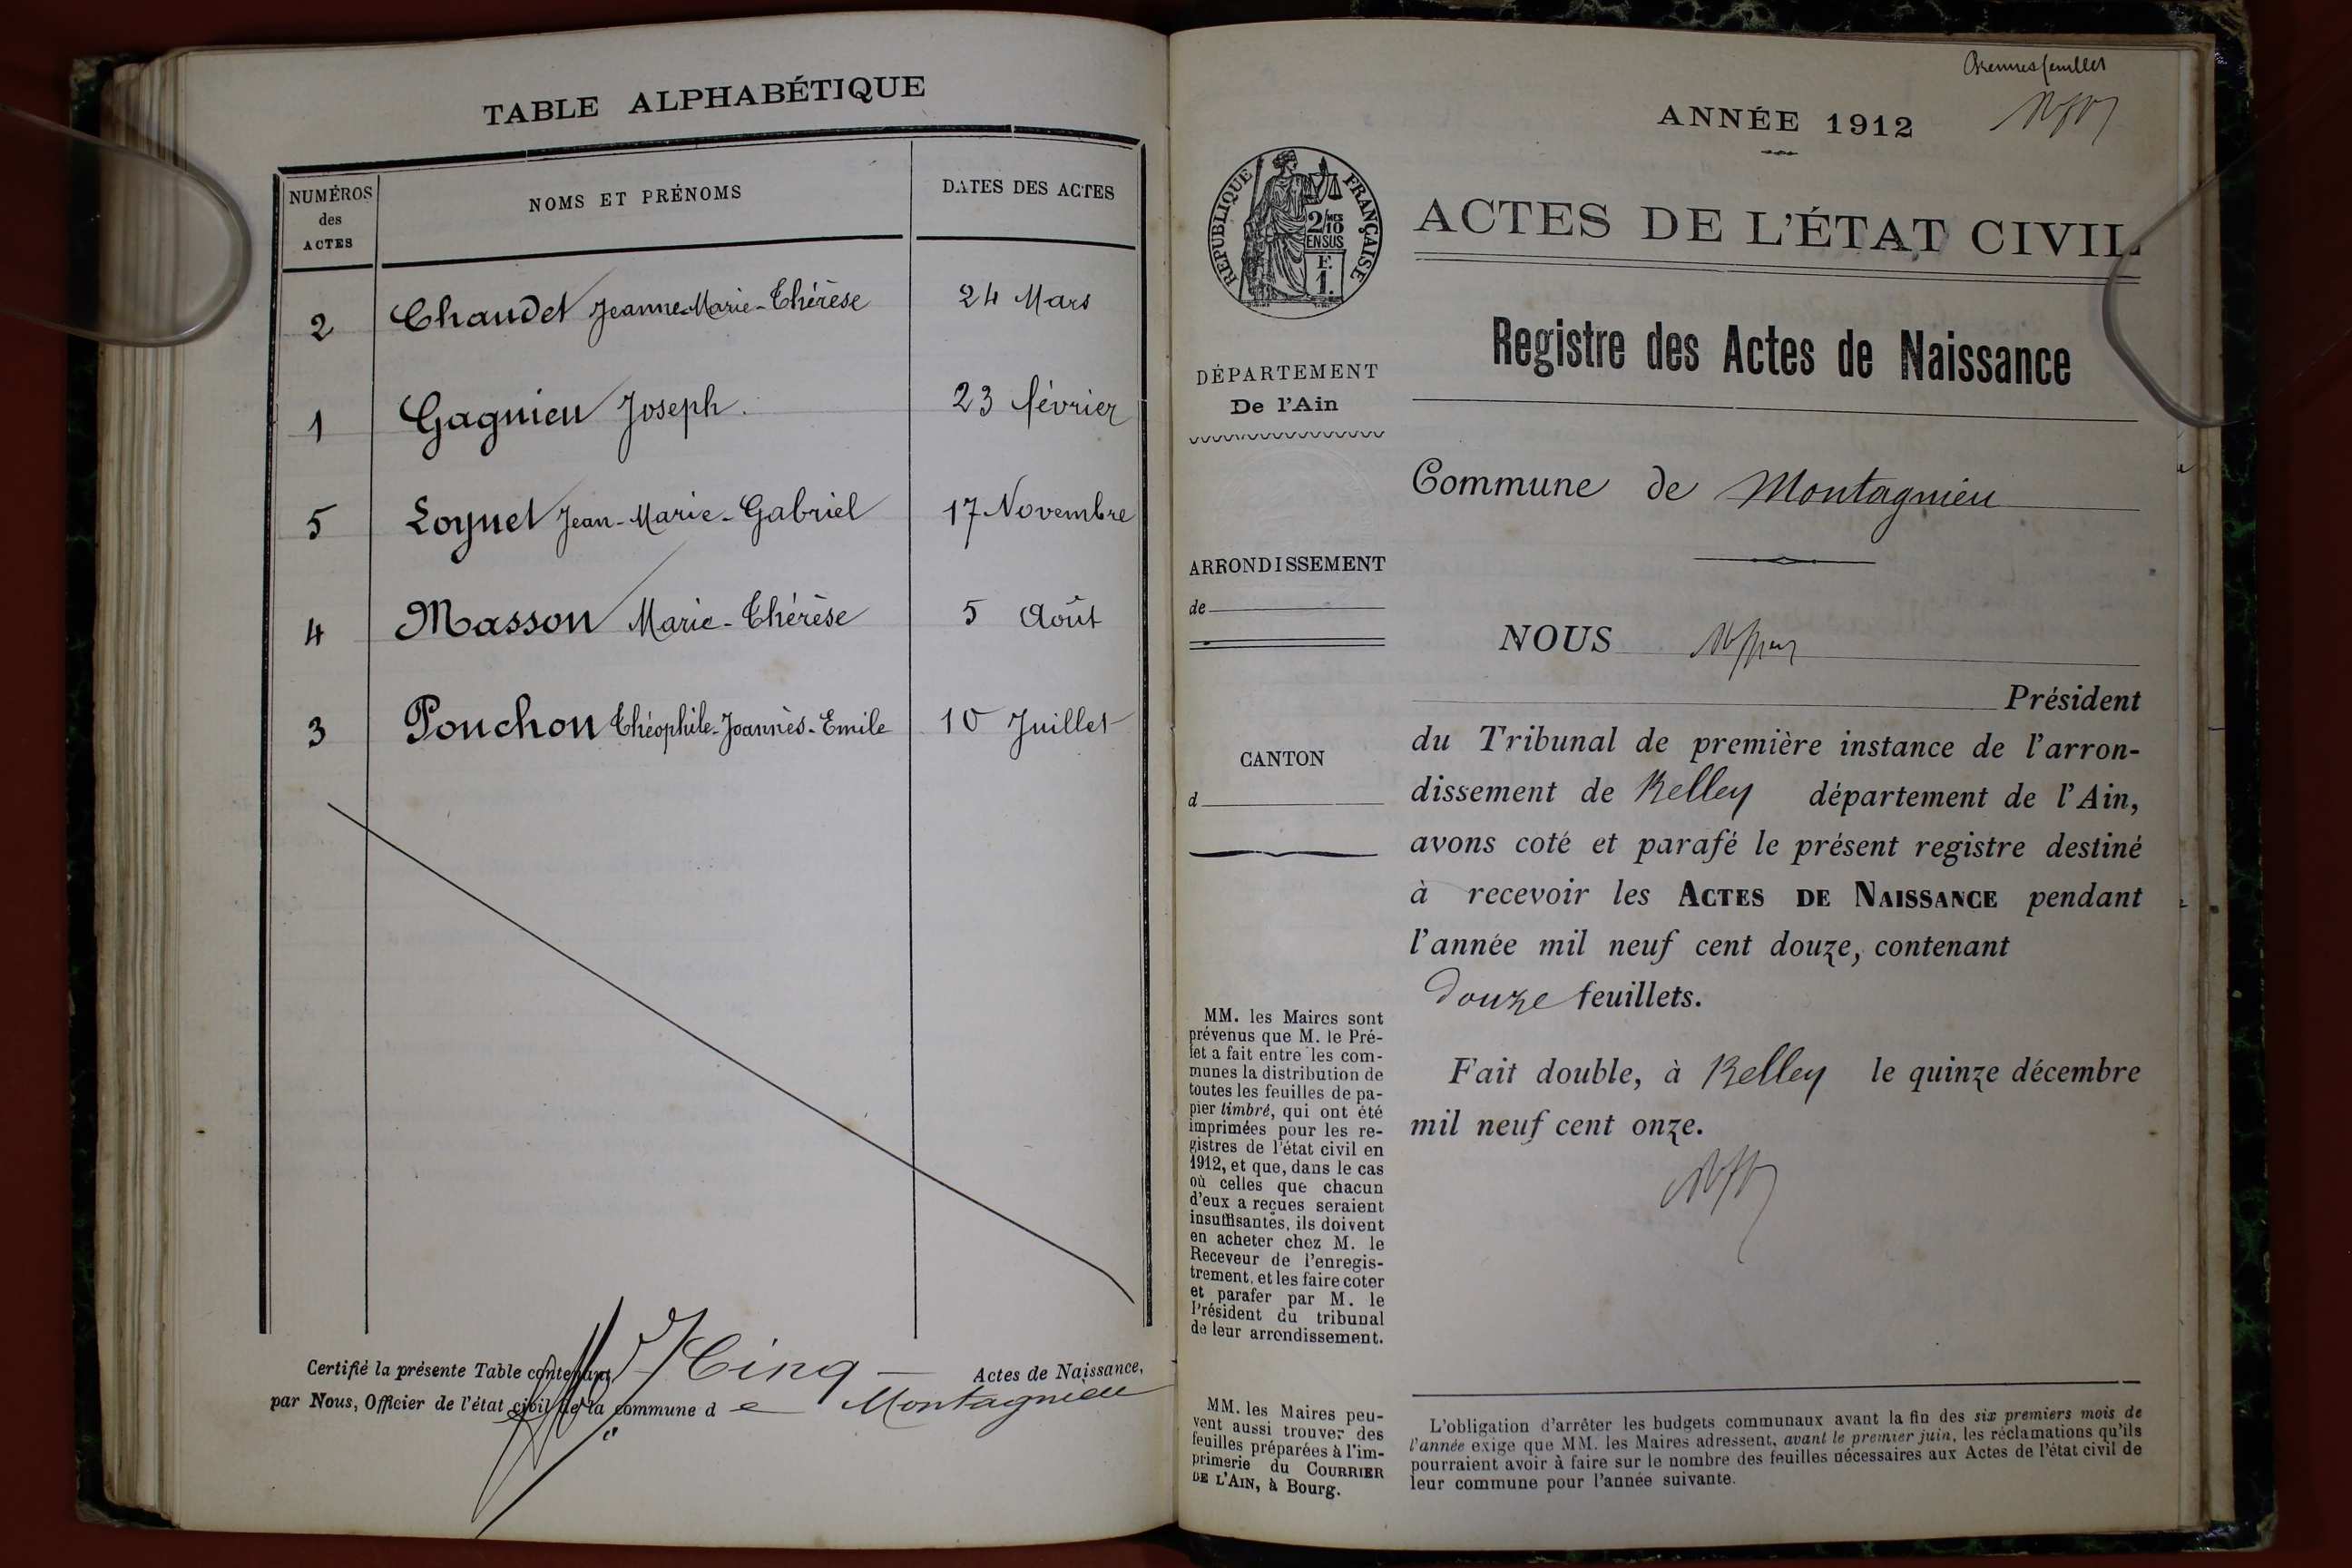 TABLE ALPHABÉTIQUE
NUMÉROS des ACTES
NOMS ET PRÉNOMS
DATES DES ACTES
2 Chaudet Jeanne-Marie-Thérèse 24 Mars
1 Gagnieu Joseph. 23 février
5 Loynet Jean-Marie-Gabriel 17 Novembre
4 Masson Marie-Thérèse 5 Août
3 Ponchon Théophile-Joannès-Emile 10 Juillet
Certifié la présente Table contenant Cinq Actes de Naissance,
par Nous, Officier de l'état civil de la commune de Montagnieu
ANNÉE 1912
RÉPUBLIQUE FRANÇAISE
2/10 MES
EN SUS
F.
1.
ACTES DE L'ÉTAT CIVIL
Registre des Actes de Naissance
DÉPARTEMENT
De l'Ain
Commune de Montagnieu
ARRONDISSEMENT
de
NOUS
Président
CANTON
d
du Tribunal de première instance de l'arron-
dissement de Belley département de l'Ain,
avons coté et parafé le présent registre destiné
à recevoir les ACTES DE NAISSANCE pendant
l'année mil neuf cent douze, contenant
douze feuillets.
Fait double, à Belley le quinze décembre
mil neuf cent onze.
MM. les Maires sont
prévenus que M. le Pré-
fet a fait entre les com-
munes la distribution de
toutes les feuilles de pa-
pier timbré, qui ont été
imprimées pour les re-
gistres de l'état civil en
1912, et que, dans le cas
où celles que chacun
d'eux a reçues seraient
insuffisantes, ils doivent
en acheter chez M. le
Receveur de l'enregis-
trement, et les faire coter
et parafer par M. le
Président du tribunal
de leur arrondissement.
MM. les Maires peu-
vent aussi trouver des
feuilles préparées à l'im-
primerie du COURRIER
DE L'AIN, à Bourg.
L'obligation d'arrêter les budgets communaux avant la fin des six premiers mois de
l'année exige que MM. les Maires adressent, avant le premier juin, les réclamations qu'ils
pourraient avoir à faire sur le nombre des feuilles nécessaires aux Actes de l'état civil de
leur commune pour l'année suivante.